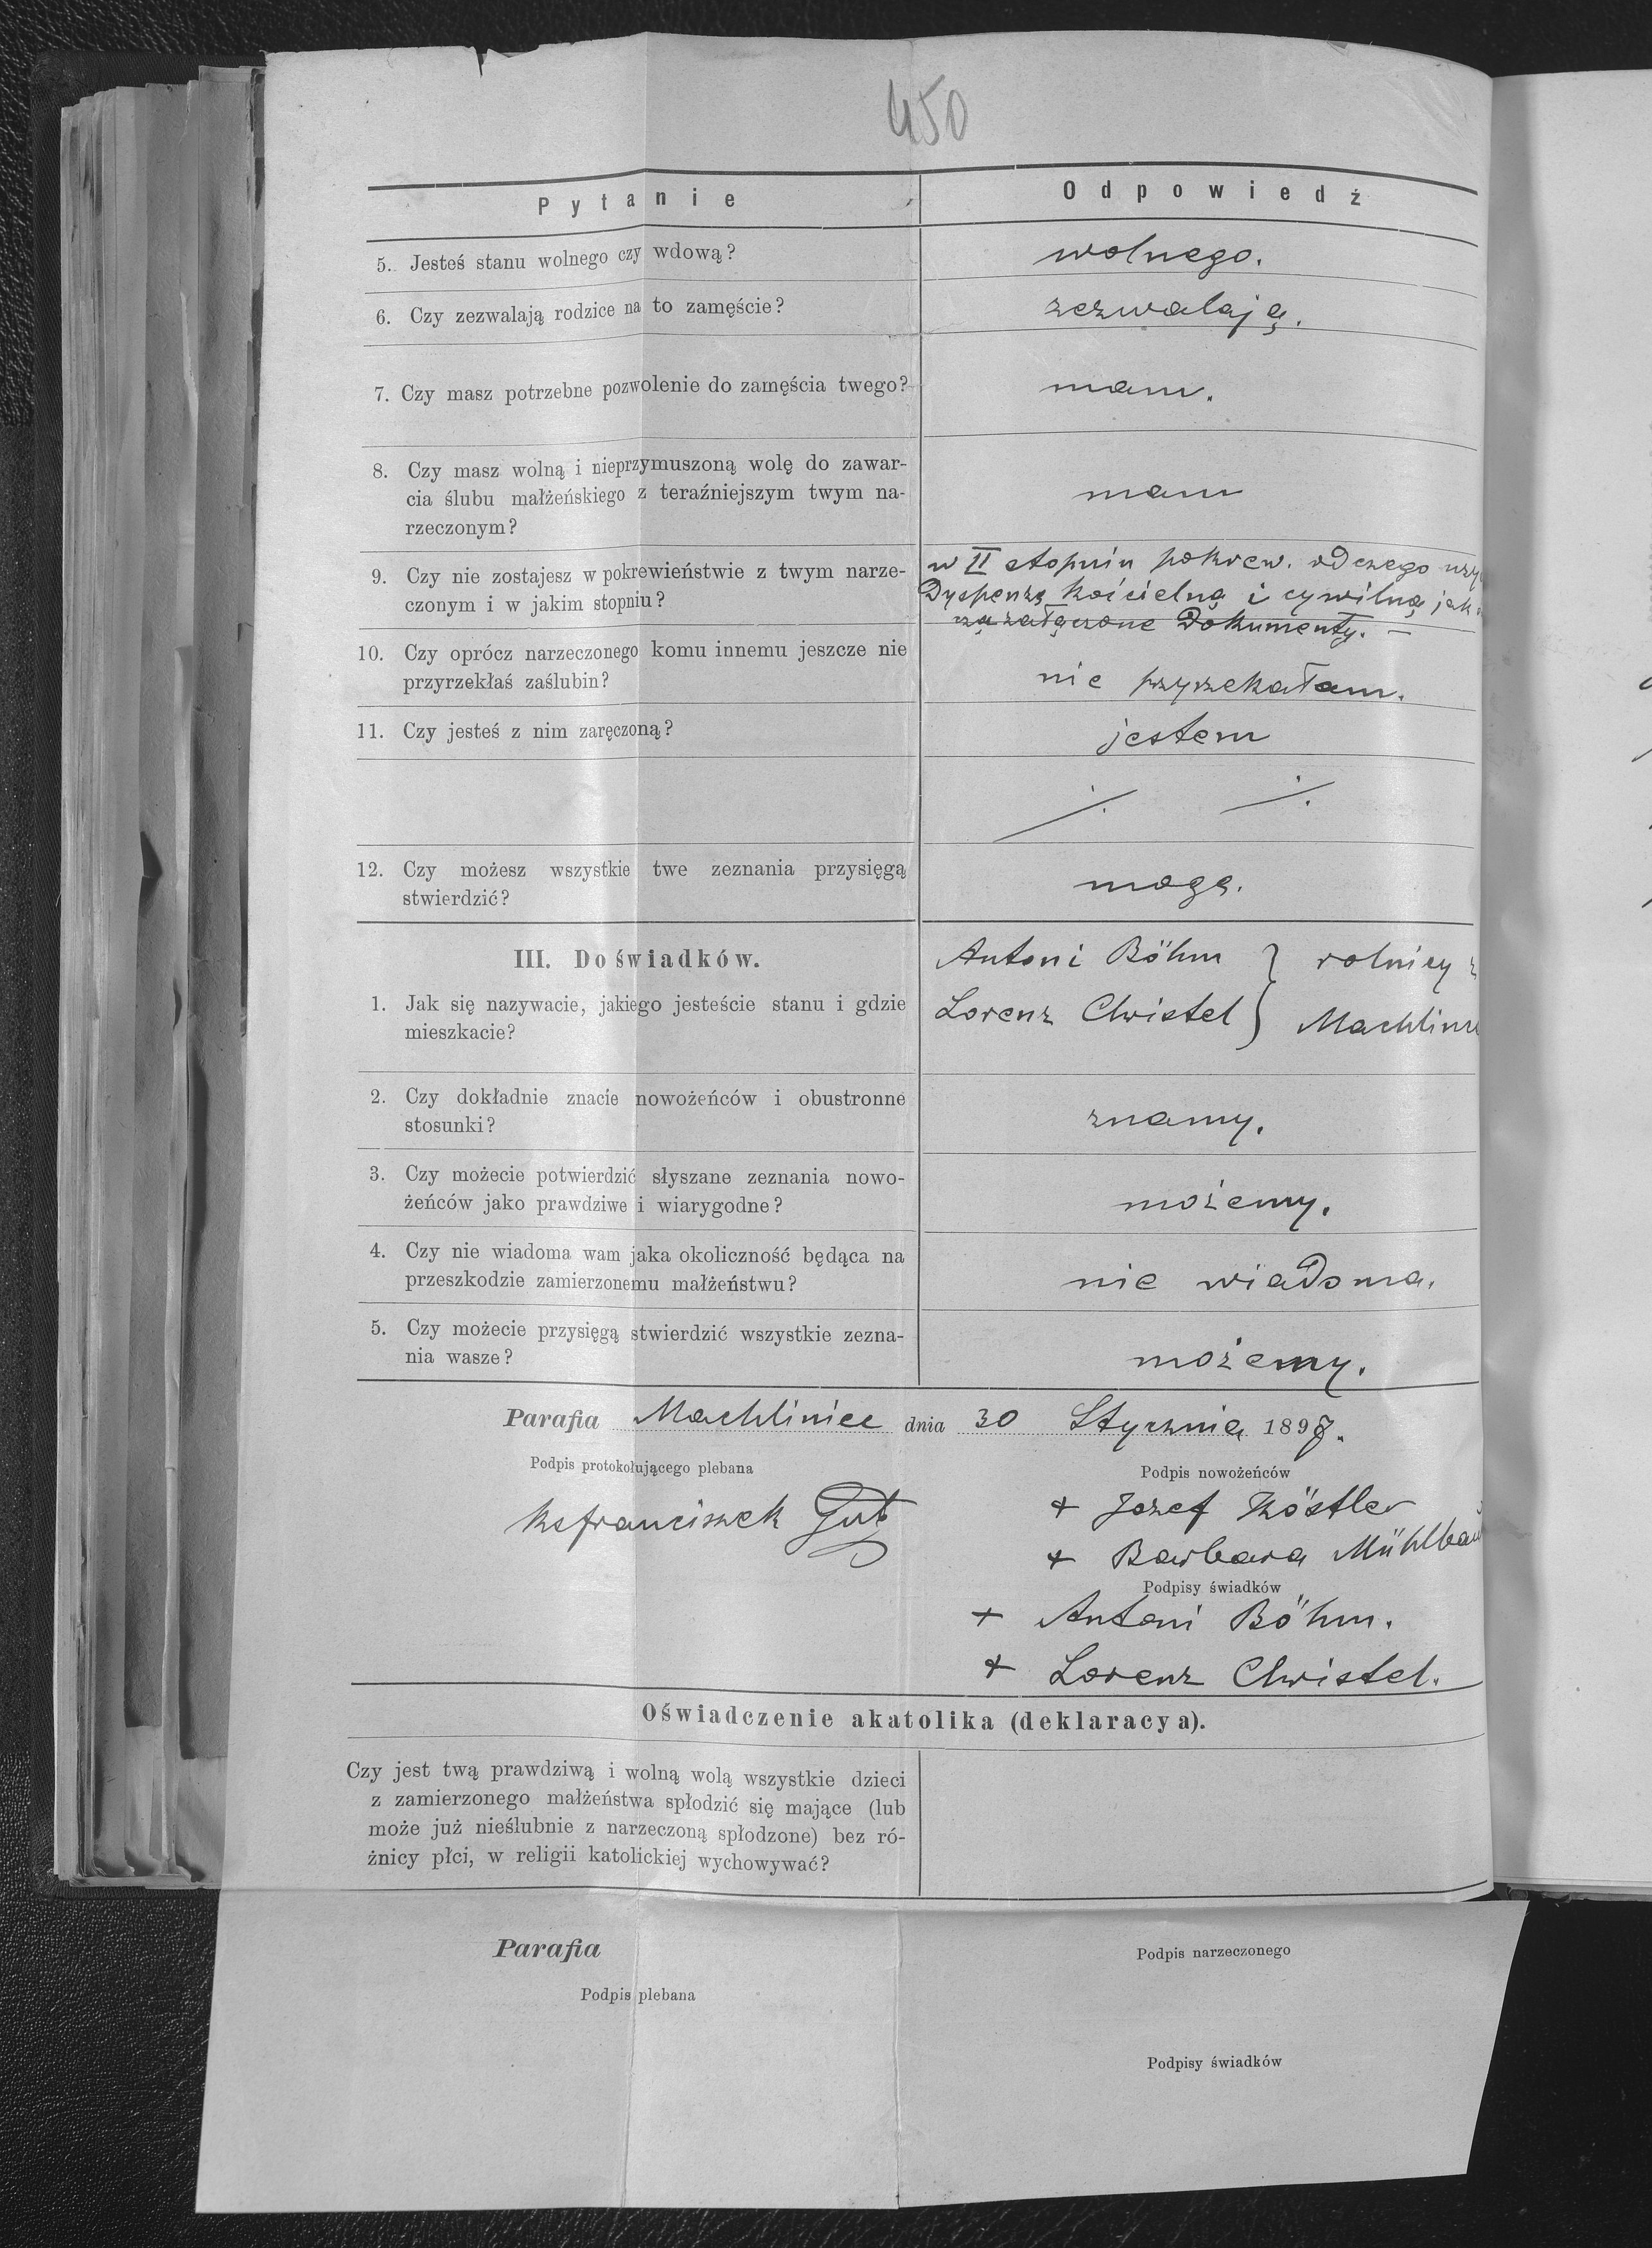 450
Pytanie
Odpowiedź
5. Jesteś stanu wolnego czy wdową?
wolnego.
6. Czy zezwalają rodzice na to zamęście?
zezwalają.
7. Czy masz potrzebne pozwolenie do zamęścia twego?
mam.
8. Czy masz wolną i nieprzymuszoną wolę do zawar-
cia ślubu małżeńskiego z teraźniejszym twym na-
rzeczonym?
mam
9. Czy nie zostajesz w pokrewieństwie z twym narze-
czonym i w jakim stopniu?
w II stopniu pokrew. od czego
Dyspenzę kościelną i cywilną jak
załączone Dokumenty. —
10. Czy oprócz narzeczonego komu innemu jeszcze nie
przyrzekłaś zaślubin?
nie przyrzekałam.
11. Czy jesteś z nim zaręczoną?
jestem
12. Czy możesz wszystkie twe zeznania przysięgą
stwierdzić?
mogę.
III. Do świadków.
1. Jak się nazywacie, jakiego jesteście stanu i gdzie
mieszkacie?
Antoni Böhm } rolnicy z
Lorenz Christel } Machlin
2. Czy dokładnie znacie nowożeńców i obustronne
stosunki?
znamy.
3. Czy możecie potwierdzić słyszane zeznania nowo-
żeńców jako prawdziwe i wiarygodne?
możemy.
4. Czy nie wiadoma wam jaka okoliczność będąca na
przeszkodzie zamierzonemu małżeństwu?
nie wiadoma.
5. Czy możecie przysięgą stwierdzić wszystkie zezna-
nia wasze?
możemy.
Parafia Machliniec dnia 30 Stycznia 1898.
Podpis protokołującego plebana
Podpis nowożeńców
Ks franciszek Gut
+ Jozef Köstler
+ Barbara Mühlbau
Podpisy świadków
+ Antoni Böhm.
+ Lorenz Christel.
Oświadczenie akatolika (deklaracya).
Czy jest twą prawdziwą i wolną wolą wszystkie dzieci
z zamierzonego małżeństwa spłodzić się mające (lub
może już nieślubnie z narzeczoną spłodzone) bez ró-
żnicy płci, w religii katolickiej wychowywać?
Parafia
Podpis narzeczonego
Podpis plebana
Podpisy świadków